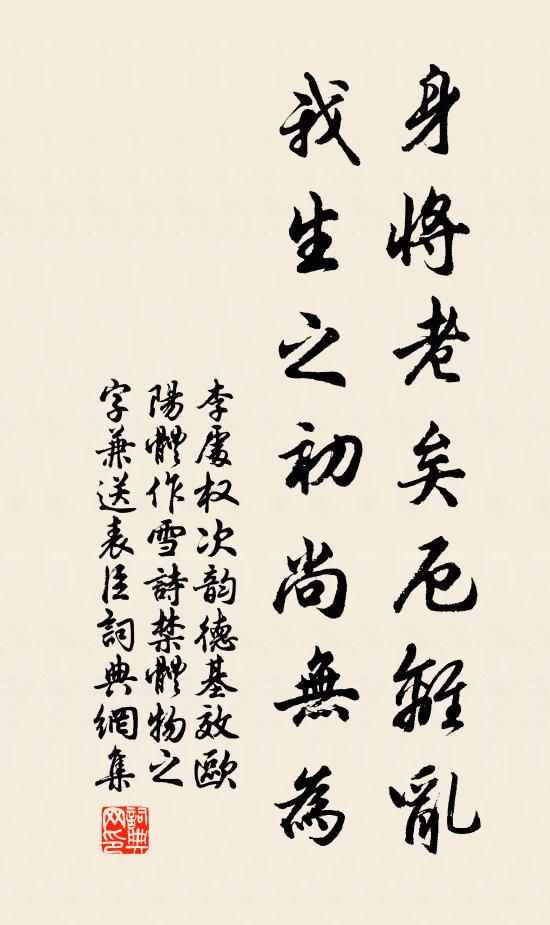 身將老矣厄離亂
我生之初尚無為
李處权次韵德基效歐
陽體作雪詩禁體物之
字兼送表臣詞典網集
詞典网印